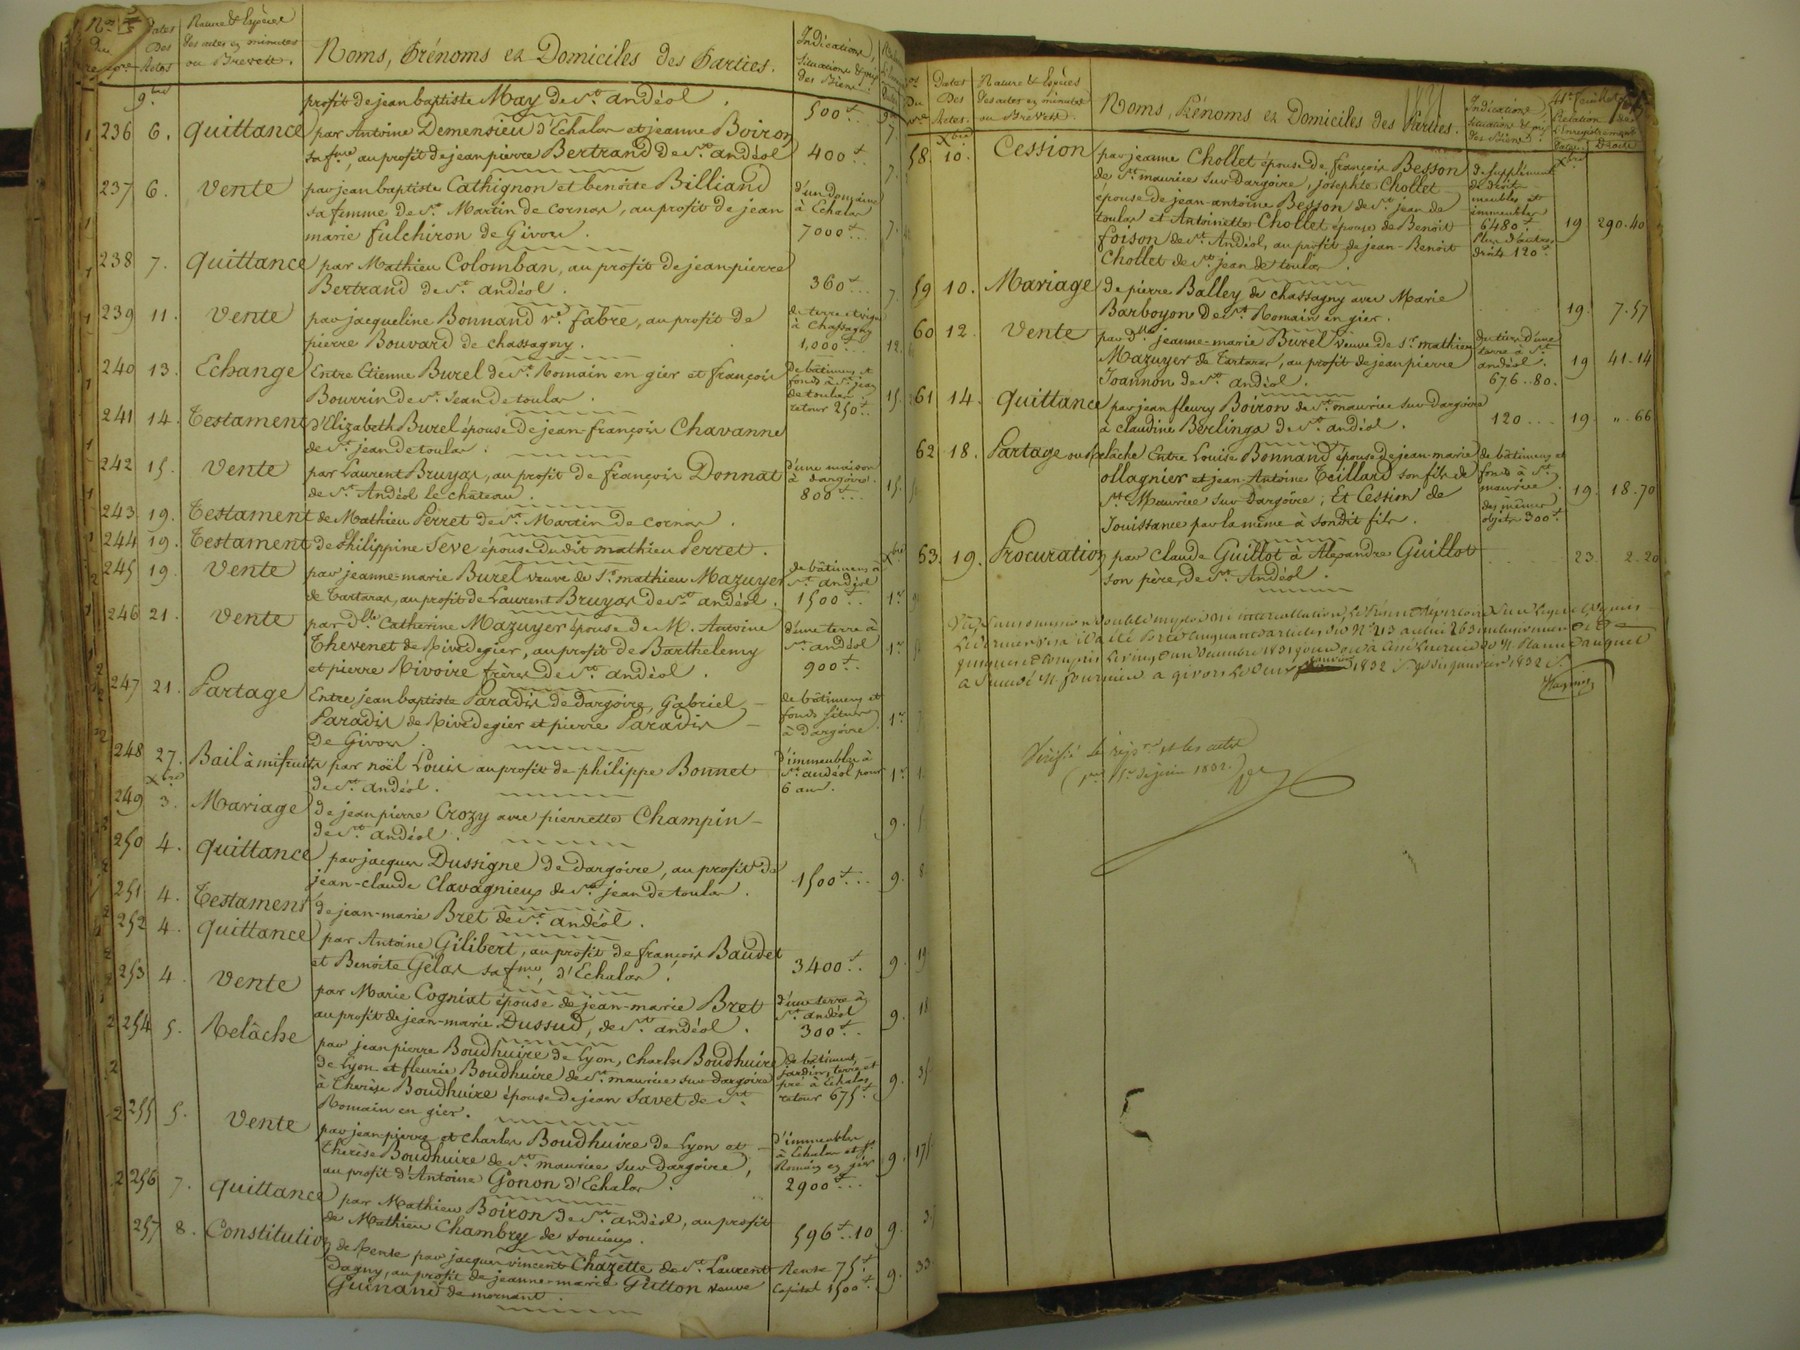 Dates Des Actes
Nature & Espèces des actes en minutes ou Brevets.
Noms, Prénoms et Domiciles des Parties.
Indications, Situations & prix des Biens
9.bre
profit de jean baptiste May de St. andéol .
500# ...
236 6. quittance par Antoine Demensieu d'Echalas et jeanne Boiron 7
sa fme, au profit de jean pierre Bertrand de St. andéol 400# ..
237 6. Vente par jean baptiste Cathignon et benoite Billiand d'un Domaine
sa femme de St. Martin de Cornas, au profit de jean à Echalas
marie fulchiron de Givors . 7000# ... 7.
238 7. quittance par Mathieu Colomban, au profit de jean pierre
Bertrand de St. andéol . 360# ... 7.
239 11. Vente par jacqueline Bonnand ve. fabre, au profit de de terre et vigne
pierre Bouvard de chassagny . à Chassagny
1,000 ... 12.
240 13. Echange Entre Etienne Burel de St. Romain en gier et françois de bâtimens et
Bourrin de St. Jean de toulas . fonds à St. jean
de toulas retour 250# .. 15.
241 14. Testament d'Elizabeth Burel épouse de jean-françois Chavanne
de St. jean de toulas .
242 15. Vente par Laurent Bruyas, au profit de françois Donnat d'une maison
de St. Andéol le château . à dargoire .
800# ... 15.
243 19. Testament de Mathieu Perret de St. Martin de Cornas .
244 19. Testament de Philippine Seve épouse dudit mathieu Perret . Xbre
245 19. Vente par jeanne-marie Burel veuve de Sr. mathieu Mazuyer de bâtimens à
de Tartaras, au profit de Laurent Bruyas de St. andéol . St. andéol
1500# .. 1er
246 21. Vente par Dlle Catherine Mazuyer épouse de M. Antoine d'une terre à
Thevenet de Rivedegier, au profit de Barthelemy St. andéol
et pierre Rivoire frères de St. andéol . 900# .. 1er
247 21. Partage Entre jean baptiste Paradis de dargoire, Gabriel – de bâtimens et
Paradis de Rivedegier et pierre Paradis – fonds situés
de Givors . à Dargoire . 1er
248 27. Bail à mifruits par noël Louis au profit de philippe Bonnet d'immeubles à
de St. andéol . St. andéol pour
6 ans . 1er
Xbre
249 3. Mariage de jean pierre Crozy avec pierrette Champin –
de St. andéol . 9.
250 4. quittance par jacques Dussigne de Dargoire, au profit de
jean-claude Clavagnieux de St. jean de toulas . 1500# ... 9.
251 4. Testament de jean-marie Bret de St. andéol .
252 4. quittance par Antoine Gilibert, au profit de françois Baudet
et Benoîte Gelas sa fme, d'Echalas . 3400# .. 9.
253 4. Vente par Marie Cogniat épouse de jean-marie Bret d'une terre à
au profit de jean-marie Dussud, de St. andéol . St. andéol
300# .. 9.
254 5. Relâche par jean pierre Boudhuire de Lyon, Charles Boudhuire De bâtiment,
de Lyon et fleurie Boudhuire de St. maurice sur dargoire jardin, terre, et
à Therèse Boudhuire épouse de jean Savet de St. pré à Echalas
Romain en gier . retour 675# . 9.
255 5. Vente par jean-pierre et Charles Boudhuire de Lyon et – d'immeubles
Therèse Boudhuire de St. maurice sur Dargoire, à Echalas et St.
au profit d'Antoine Gonon d'Echalas . Romain en gier
2900# ... 9.
256 7. quittance par Mathieu Boiron de St. andéol, au profit
de Mathieu Chambry de Soucieux . 596# .. 10 9.
257 8. Constitution de Rente par jacques vincent Chazette de St. Laurent Rente 75#
Dagny, au profit de jeanne-marie Gutton veuve Capital 1500# . 9. 33
Guinand de mornant .
Dates Des Actes.
Nature & Espèces des actes en minutes ou Brevets
Noms, Prénoms et Domiciles des Parties.
Indications, situations & prix des Biens
41e feuillet
Relation de l'Enregistrement
Dates Droits
Xbre Xbre
58. 10. Cession par jeanne Chollet épouse de françois Besson de supplément
de St. maurice sur Dargoire, josephte Chollet – de droit
épouse de jean-antoine Besson de St. jean de meubles et
toulas et Antoinette Chollet épouse de Benoît immeubles
foison de St. Andéol, au profit de jean-Benoit 6480# . 19. 290.40
Chollet de St. jean de toulas . droits 120# .
59 10. Mariage de pierre Balley de chassagny avec Marie
Barboyon de St. Romain en gier . 19. 7.57
60 12. Vente par Dlle jeanne-marie Burel veuve de Sr. mathieu du tiers d'une
Mazuyer de Tartaras, au profit de jean pierre terre à St.
Joannon de St. andéol . andéol .
676 .. 80. 19 41.14
61 14. quittance par jean fleury Boiron de St. maurice sur Dargoire
à claudine Berlinga de St. andéol . 120 .... 19 ". 66
62 18. Partage ou relâche Entre Louise Bonnand épouse de jean-marie de bâtimens et
ollagnier et jean-Antoine Teillard son fils de fonds à St.
St. Maurice sur Dargoire ; Et Cession de maurice ;
Jouissance par la même à son dit fils . des mêmes
objets 300# . 19. 18.70
63. 19. Procuration par Claude Guillot à Alexandre Guillot ..... 23. 2.20
son père, de St. Andéol .
Vérifié le rép.re et les actes
( juin 1832 .)